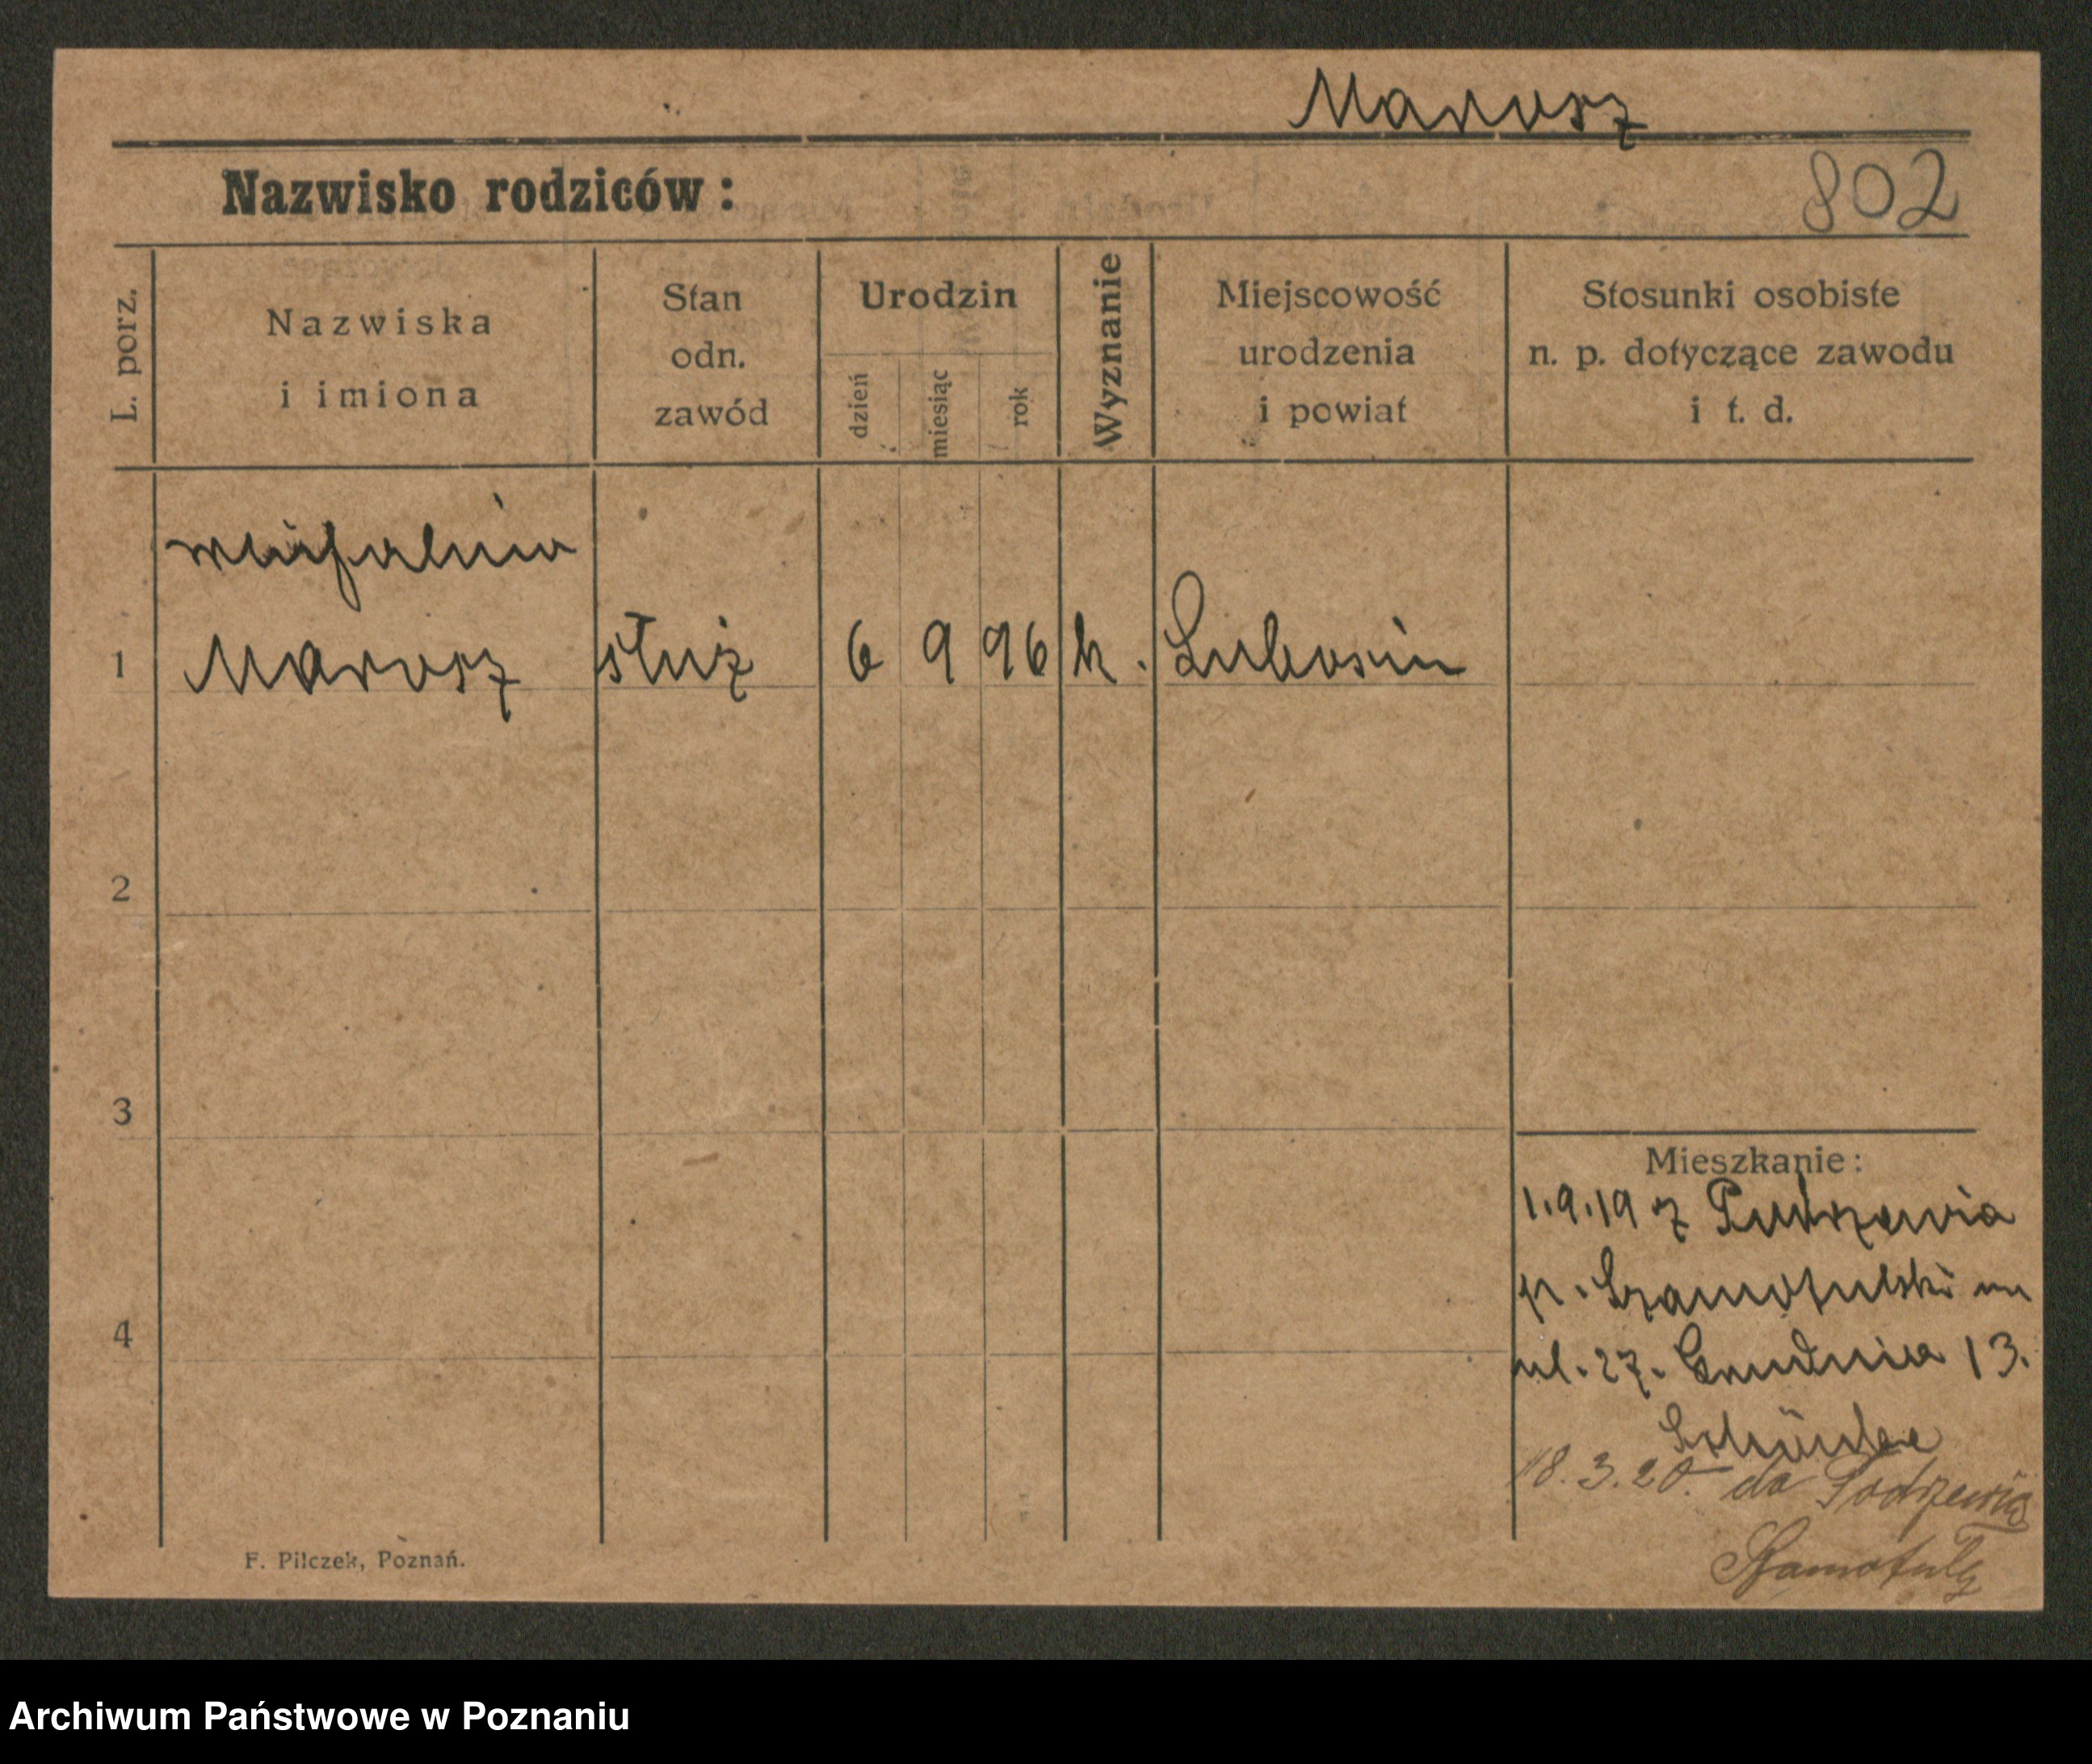 Marosz
Nazwisko rodziców:
802
L. porz.
Nazwiska
i imiona
Stan
odn.
zawód
Urodzin
dzień
miesiąc
rok
Wyznanie
Miejscowość
urodzenia
i powiat
Stosunki osobiste
n. p. dotyczące zawodu
i t. d.
1
Marosz
służ
6
9
96
k.
Lubosin
2
3
4
Mieszkanie:
1.9.19 z
p. Szamotulski
ul. 27. Grudnia 13.
18. 3. 20. do Podrzewia
Szamotuly
F. Pilczek, Poznań.
Archiwum Państwowe w Poznaniu